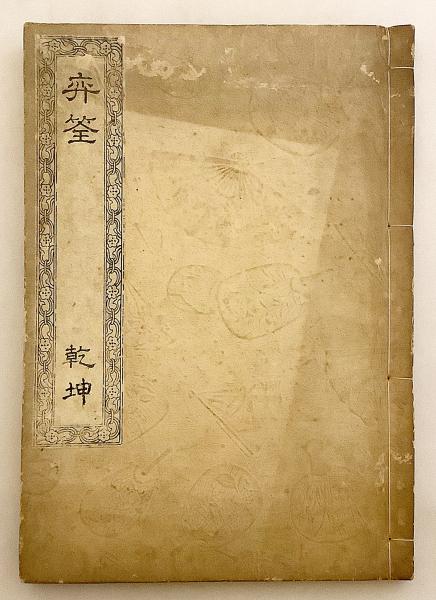 弈筌
乾坤